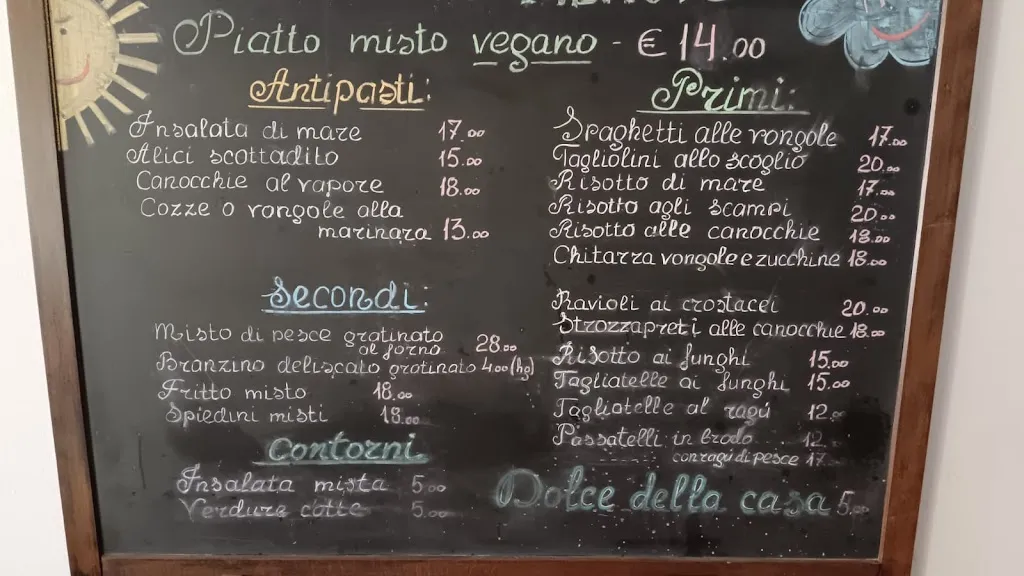 Piatto misto vegano - € 14.00
Antipasti:
Insalata di mare 17.00
Alici scottadito 15.00
Canocchie al vapore 18.00
Cozze o vongole alla
marinara 13.00
Secondi:
Misto di pesce gratinato
al forno 28.00
Branzino deliscato gratinato 4.00 (hg)
Fritto misto 18.00
Spiedini misti 18.00
Contorni
Insalata mista 5.00
Verdure cotte 5.00
Primi:
Spaghetti alle vongole 17.00
Tagliolini allo scoglio 20.00
Risotto di mare 17.00
Risotto agli scampi 20.00
Risotto alle canocchie 18.00
Chitarra vongole e zucchine 18.00
Ravioli ai crostacei 20.00
Strozzapreti alle canocchie 18.00
Risotto ai funghi 15.00
Tagliatelle ai funghi 15.00
Tagliatelle al ragú 12.00
Passatelli in brodo 12.00
con ragú di pesce 17.00
Dolce della casa 5.00